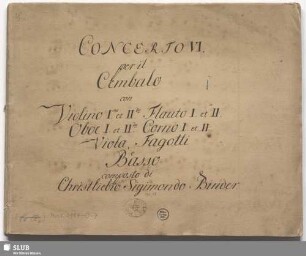 CONCERTO VI.
per il
Cembalo
con
Violino I.mo et II.do Flauto I et II
Oboe I et II.do Corno I et II
Viola, Fagotti
e
Basso
composto di
Christliebe Sigismondo Binder
SLUB
Wir führen Wissen.